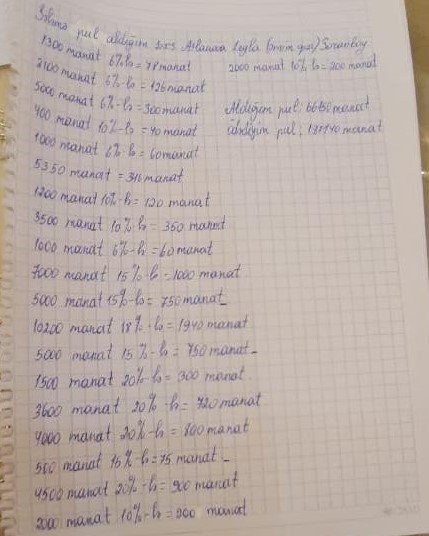 pul aldığım şəxs Aslanova Leyla
1300 manat 6%-lə = 78 manat
2100 manat 6%-lə = 126 manat
5000 manat 6%-lə = 300 manat
400 manat 10%-lə = 40 manat
1000 manat 6%-lə = 60 manat
5350 manat = 346 manat
1200 manat 10%-lə = 120 manat
3500 manat 10%-lə = 350 manat
1000 manat 6%-lə = 60 manat
7000 manat 15%-lə = 1000 manat
5000 manat 15%-lə = 750 manat
10200 manat 18%-lə = 1940 manat
5000 manat 15%-lə = 750 manat
1500 manat 20%-lə = 300 manat
3600 manat 20%-lə = 720 manat
4000 manat 20%-lə = 800 manat
500 manat 15%-lə = 75 manat
4500 manat 20%-lə = 900 manat
2000 manat 10%-lə = 200 manat
2000 manat 10%-lə = 200 manat
Aldığım pul: manat
pul: manat